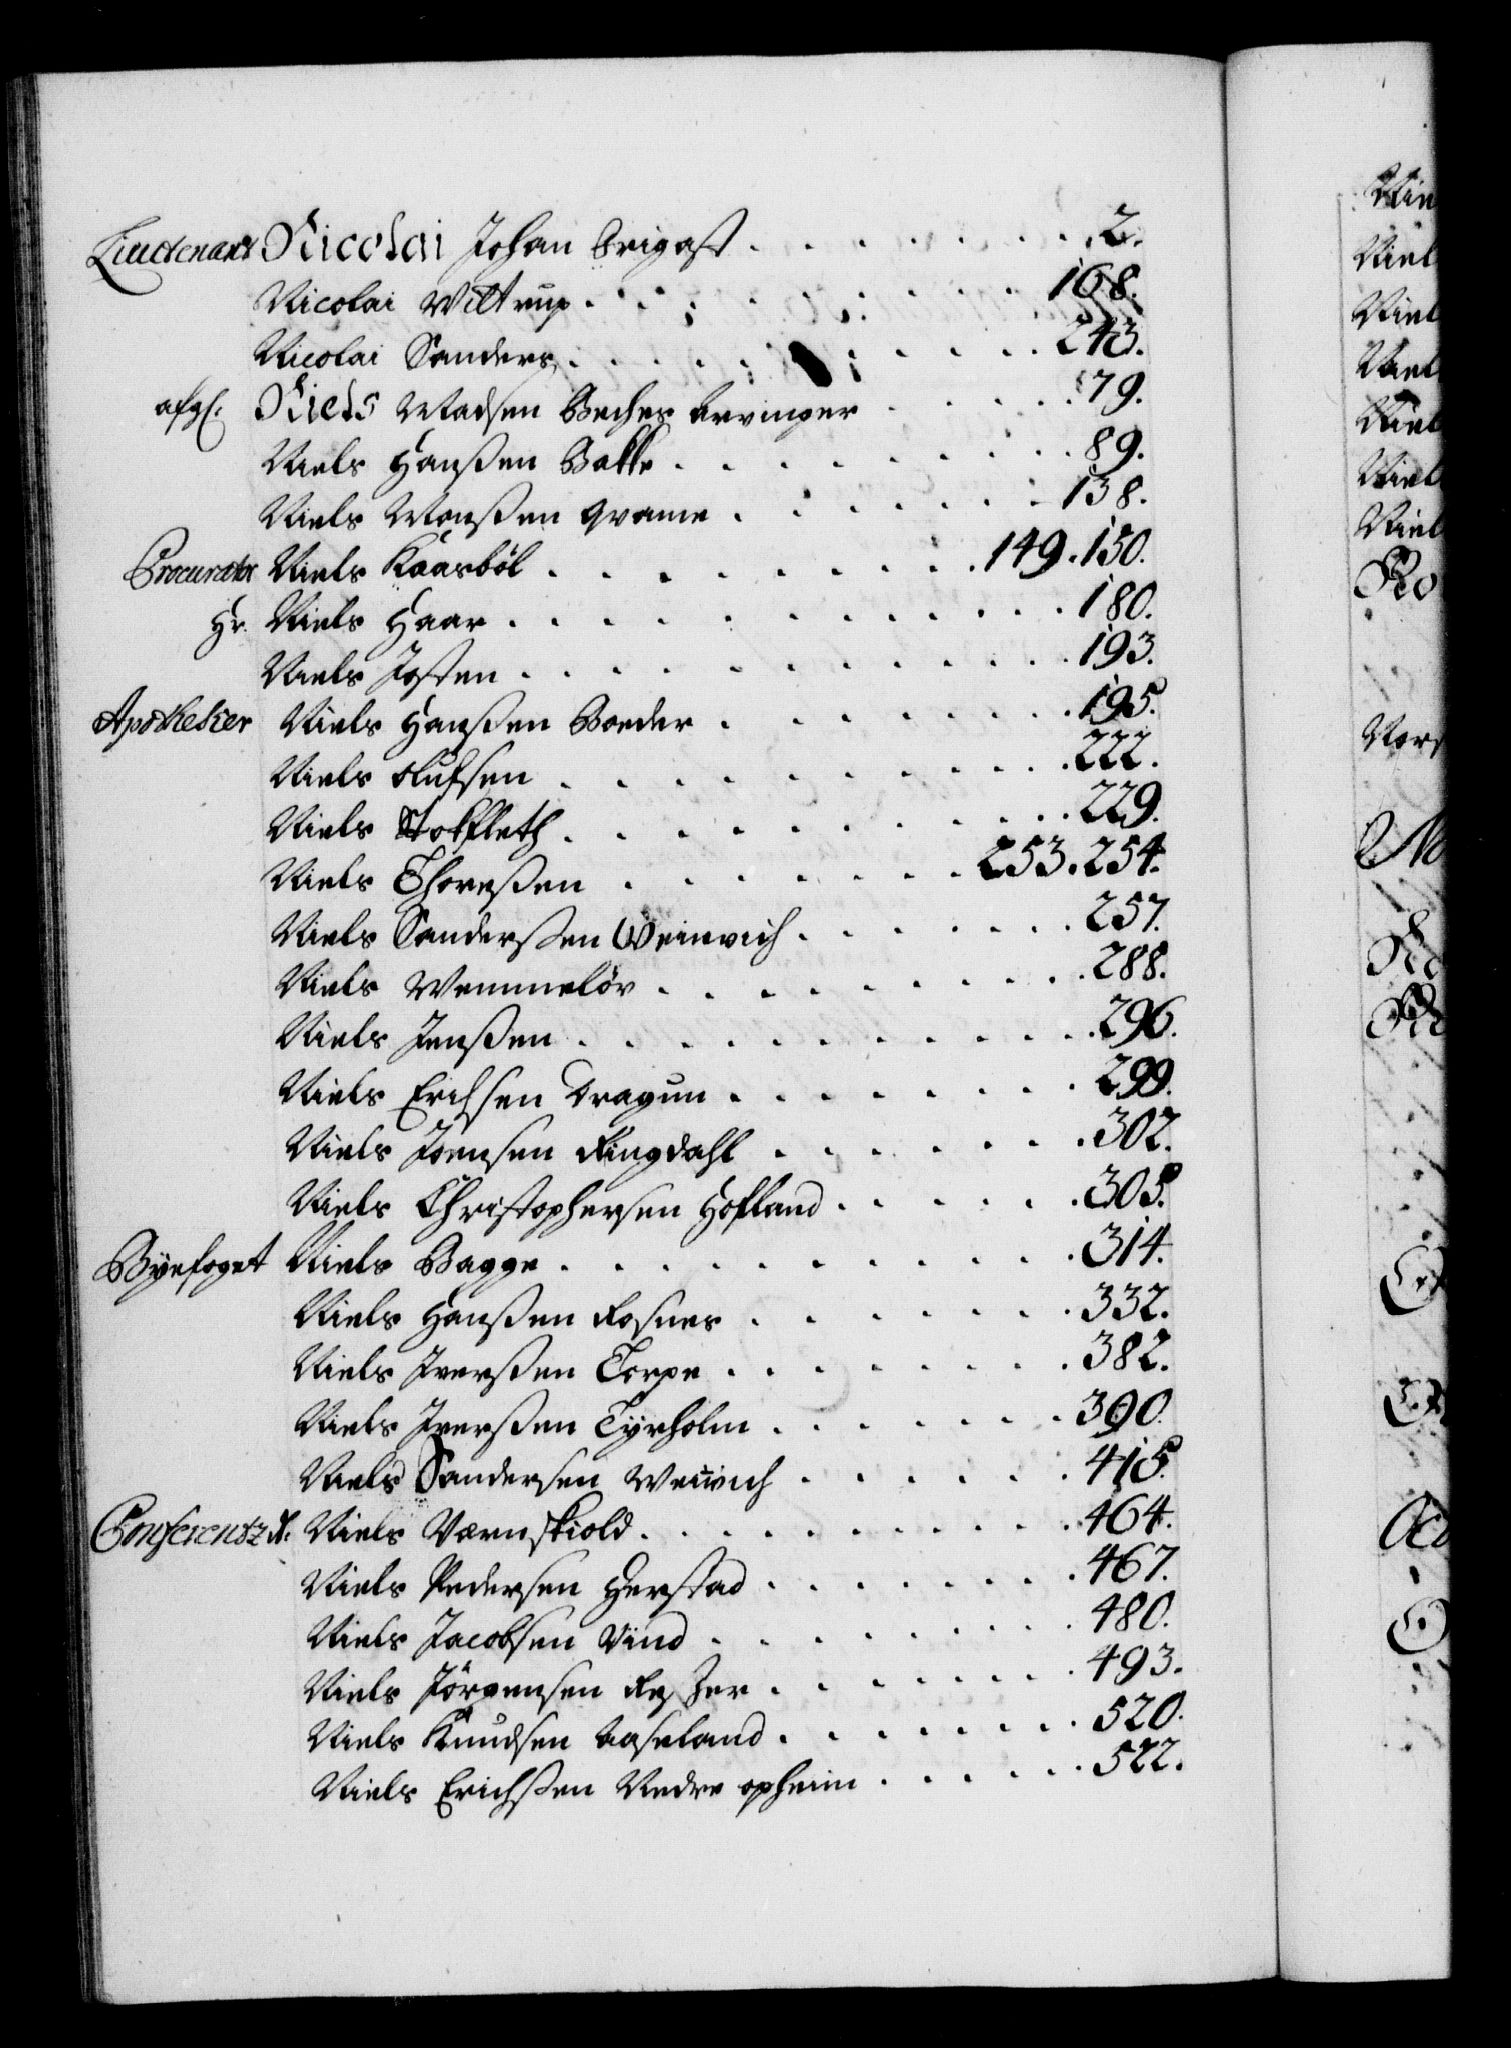 Lieutenant Nicolai Johan Brigast . . . . . . . 2.
Nicolai Wittrup . . . . . . . . . 168.
Nicolai Sanders . . . . . . . . . 243.
afgl. Niels Madsen Beches Arvinger . . . . . 79.
Niels Hanßen Bakke . . . . . . . . 89.
Niels Monßen Qvame . . . . . . . 138.
Procurator Niels Kaasböl . . . . . . . . 149. 150.
Hr. Niels Haar . . . . . . . . . . 180.
Niels Josten . . . . . . . . . . 193.
Apotheker Niels Hanßen Boeder . . . . . . . 195.
Niels Olufsen . . . . . . . . . . 222.
Niels Stokfleth . . . . . . . . . . 229.
Niels Thoreßen . . . . . . . 253. 254.
Niels Sanderßen Weinwich . . . . . . 257.
Niels Wemmelöv . . . . . . . . . 288.
Niels Jenßen . . . . . . . . . . 296.
Niels Erichsen Dragun . . . . . . . 299.
Niels Joensen Ringdahl . . . . . . 302.
Niels Christophersen Hofland . . . . . 305.
Byefoget Niels Bagge . . . . . . . . . . 314.
Niels Hanßen Rosnes . . . . . . . 332.
Niels Iverßen Torpe . . . . . . . . 382.
Niels Iverßen Tyrholm . . . . . . . 390.
Niels Sandersen Weinvich . . . . . . 415.
Conferentz R. Niels Værnskiold . . . . . . . . . 464.
Niels Pedersen Herstad . . . . . . . 467.
Niels Jacobsen Vind . . . . . . . . 480.
Niels Jörgensen . . . . . . . 493.
Niels Knudsen Aaseland . . . . . . . 520.
Niels Erichßen Nedre opheim . . . . . . 522.